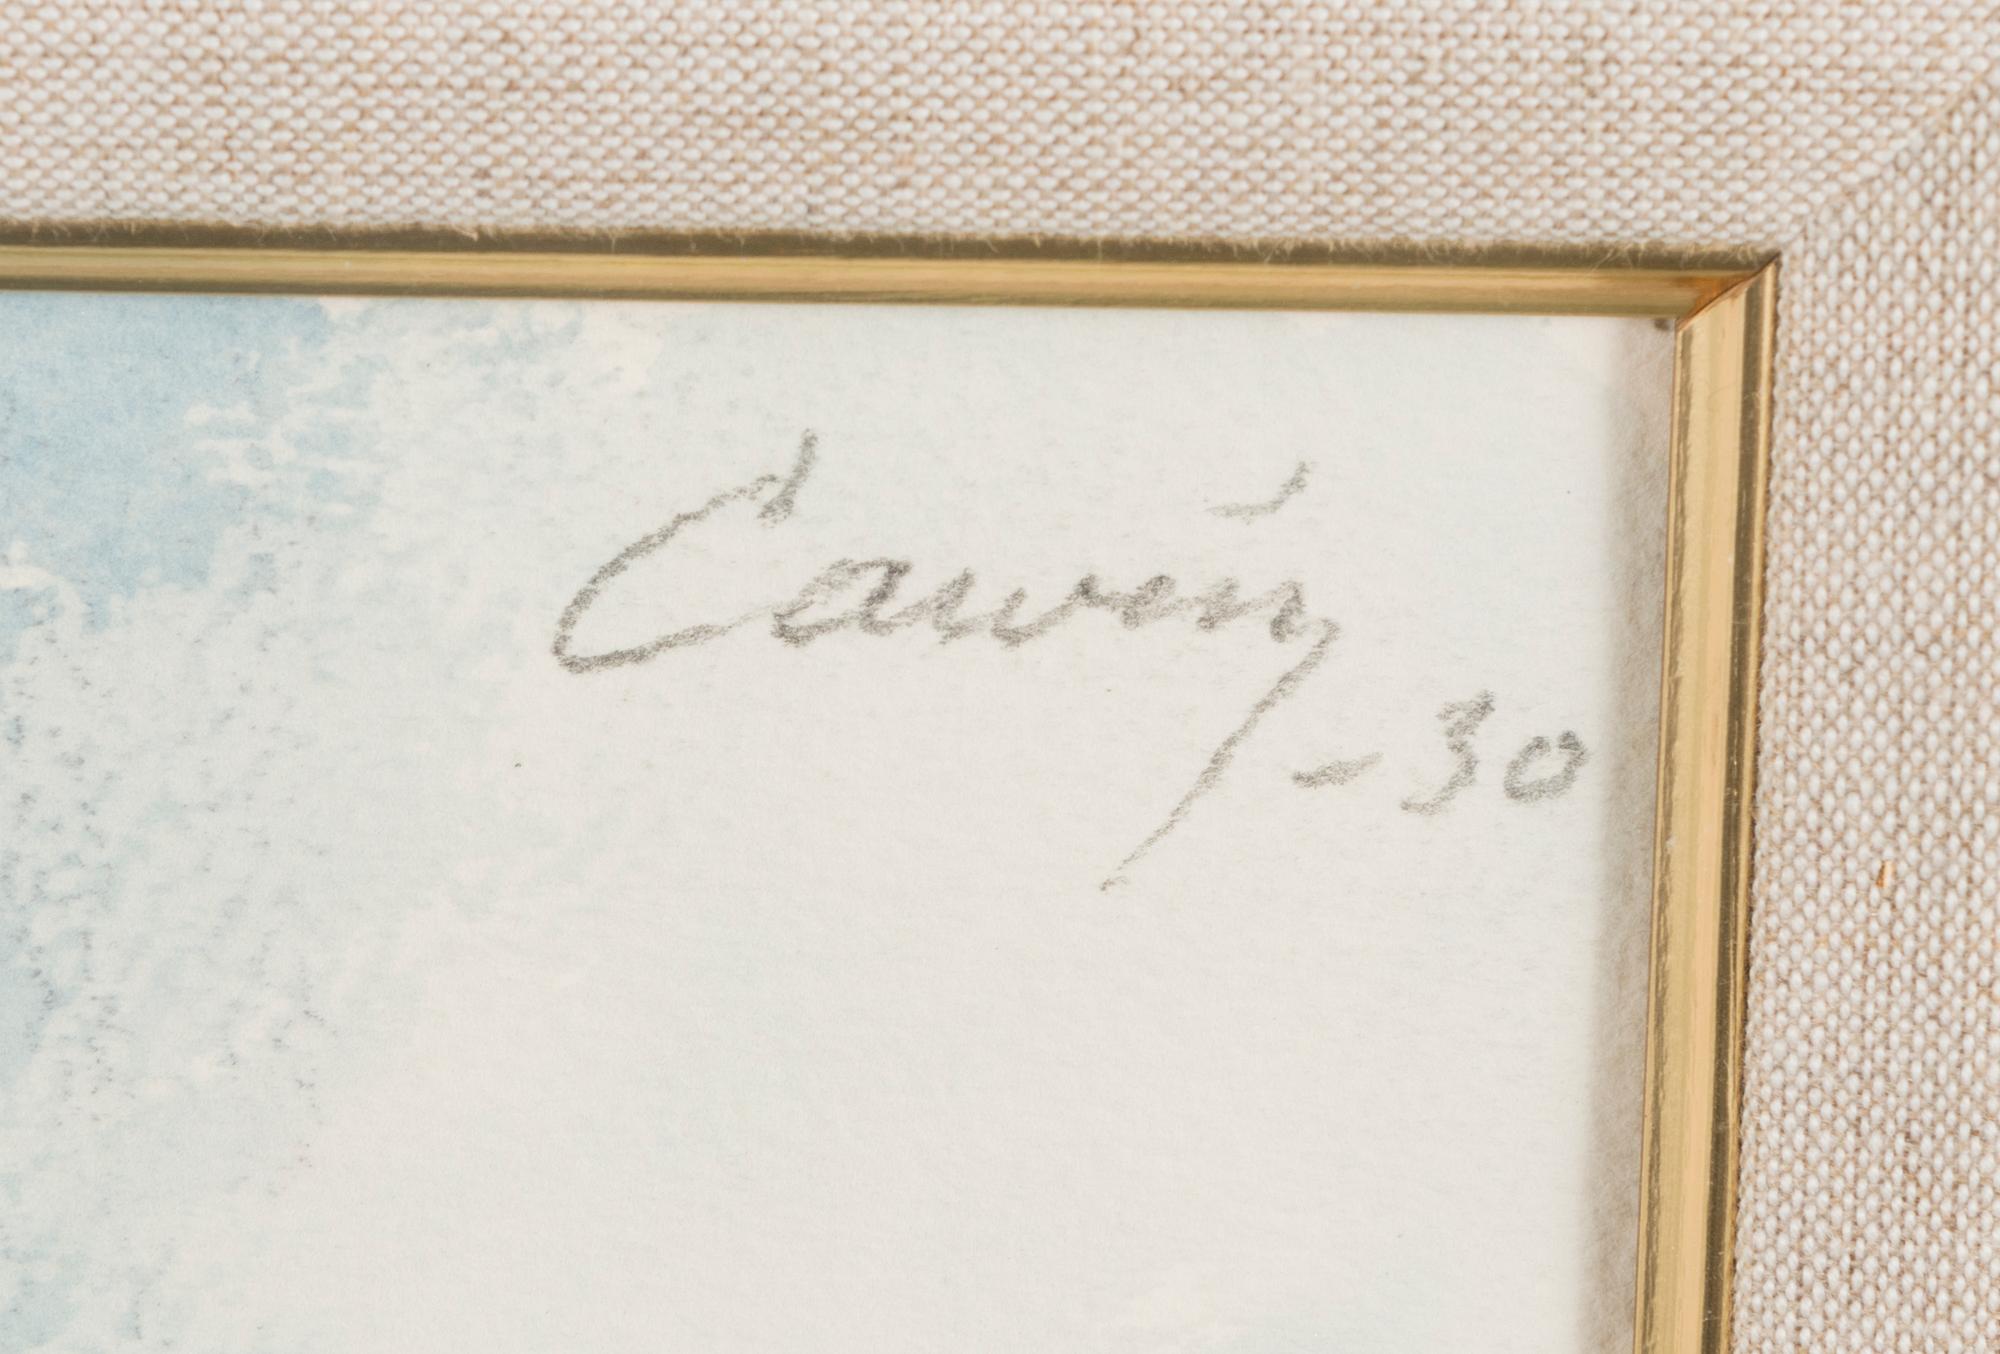 Cawén -30